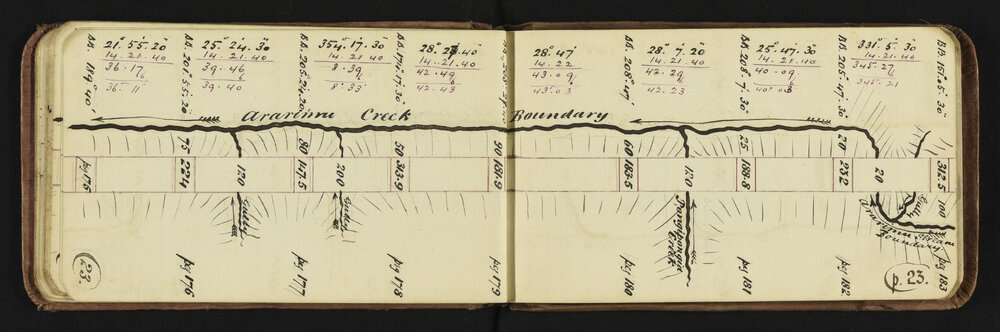 21° 55' 20"
14. 21. 40
36. 17
6
36. 11
25° 24' 30"
14. 21. 40
39. 46
6
39. 40
354° 17' 30"
14. 21. 40
8. 39
6
8° 33'
14. 21. 40
42. 49
6
42. 43
28° 47'
14. 22
43. 09
6
43. 03
28° 7' 20"
14. 21. 40
42. 29
6
42. 23
25° 47' 30"
14. 21. 40
40. 09
6
40. 03
331° 5' 30"
14. 21. 40
345. 27
6
345. 21
BB. 189° 40'
BB. 201° 55' 20"
BB. 205° 24' 20"
BB. 174° 17' 30"
BB. 208° 47'
BB. 208° 7' 30"
BB. 205° 47' 30"
BB 151° 05' 30"
Ararimu Creek Boundary
peg 175
75
224
120
80
147.5
200
50
313.9
90
181.9
60
183.5
120
25
188.8
20
232
20
312.5
100
Gully
Gully
Creek
Gully
Ararimu Stream
Boundary
23.
peg 176
peg 177
peg 178
peg 179
peg 180
peg 181
peg 182
p. 23.
peg 183